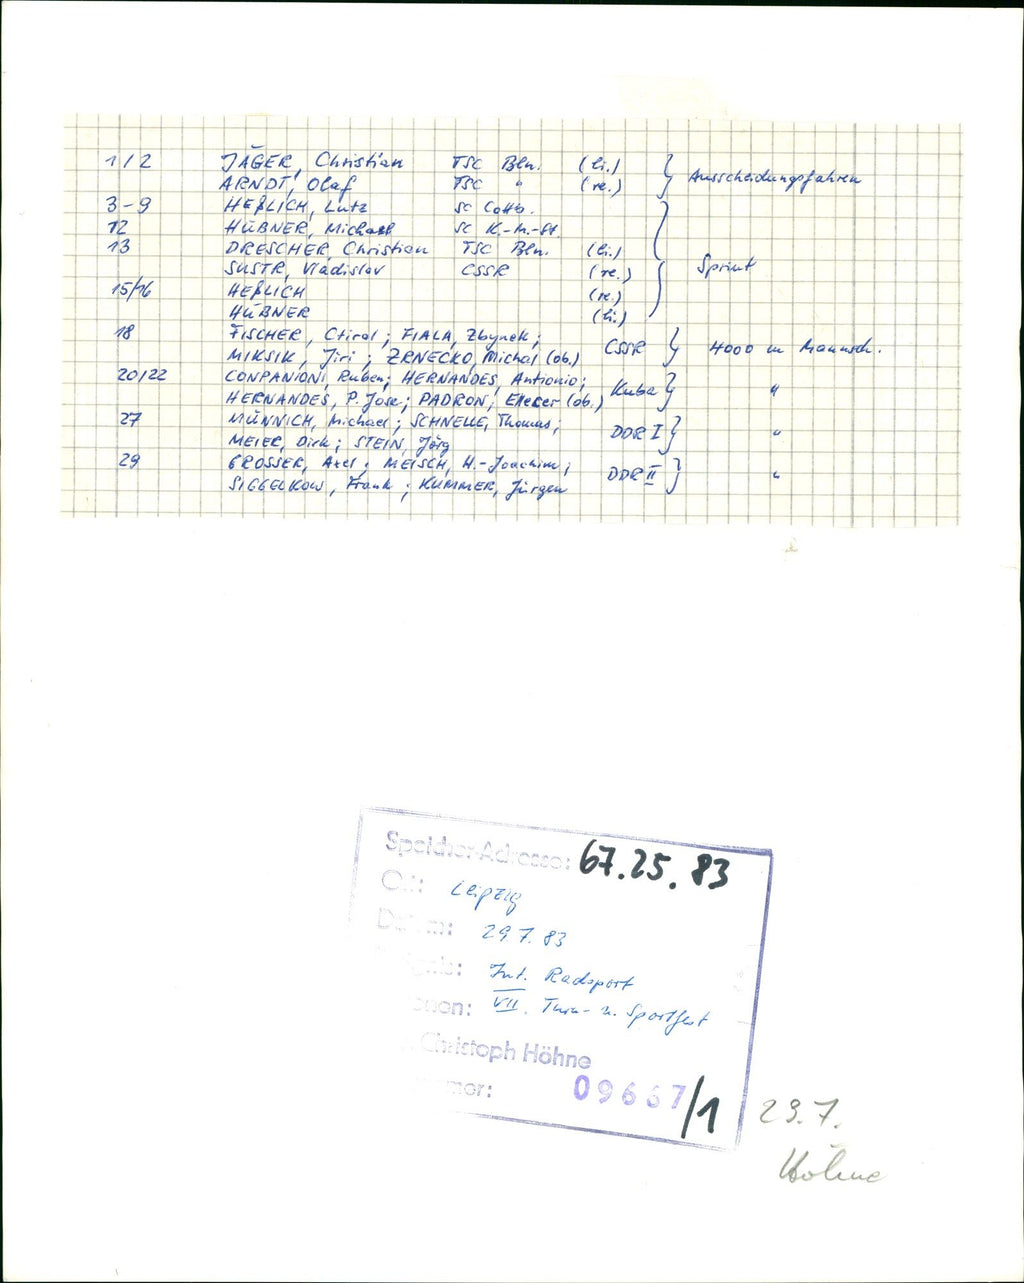 1/2 JÄGER, Christian TSC Bln. (li.)
ARNDT, Olaf TSC " (re.) } Ausscheidungsfahren
3-9 HEßLICH, Lutz SC Cottb.
12 HÜBNER, Michael SC K.-M.-St
13 DRESCHER, Christian TSC Bln. (li.)
SUSTR, Vladislav CSSR (re.) } Sprint
15/16 HEßLICH (re.)
HÜBNER (li.)
18 FISCHER, Ctirad; FIALA, Zbynek;
MIKSIK, Jiri; ZRNECKO, Michal (ob.) CSSR } 4000 m Mannsch.
20/22 CONPANIONI, Ruben; HERNANDES, Antionio;
HERNANDES, P. Jose; PADRON, (ob.) Kuba } "
27 MÜNNICH, Michael; SCHNELLE, Thomas;
MEIER, Dirk; STEIN, Jörg DDR I } "
29 GROSSER, Axel; MEISCH, H.-Joachim;
SIGGELKOW, Frank; KUMMER, Jürgen DDR II } "
Speicher-Adresse: 67.25.83
Ort: Leipzig
Datum: 29.7.83
Int. Radsport
VII. Turn- u. Sportfest
Christoph Höhne
09667/1
29.7.
Höhne